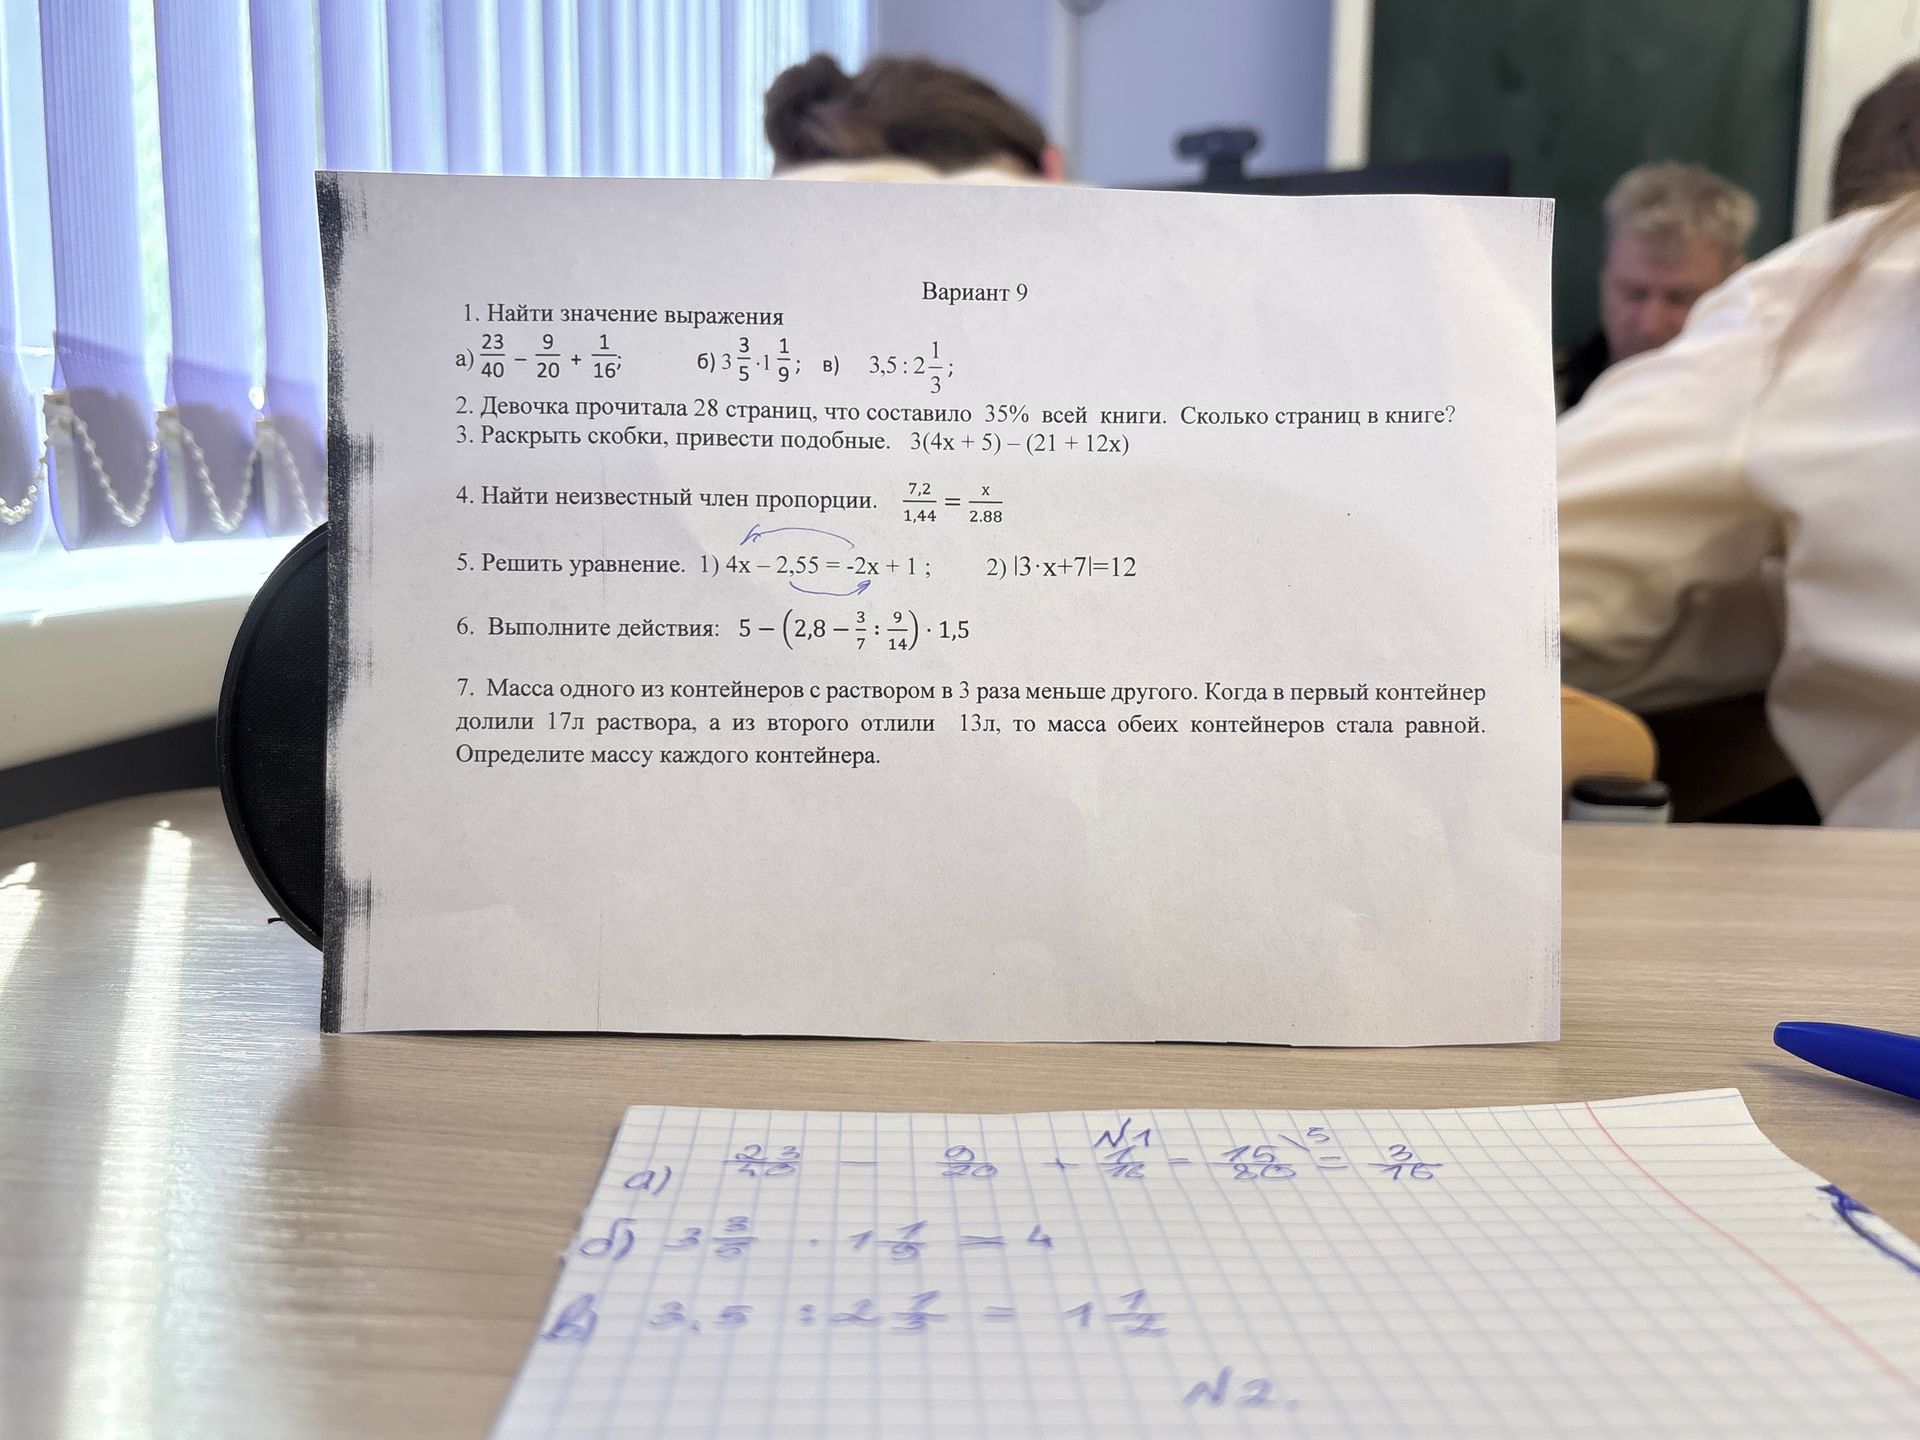 Вариант 9
1. Найти значение выражения
а) 23/40 − 9/20 + 1/16; б) 3 3/5 · 1 1/9; в) 3,5 : 2 1/3;
2. Девочка прочитала 28 страниц, что составило 35% всей книги. Сколько страниц в книге?
3. Раскрыть скобки, привести подобные. 3(4x + 5) – (21 + 12x)
4. Найти неизвестный член пропорции. 7,2/1,44 = x/2.88
5. Решить уравнение. 1) 4x – 2,55 = -2x + 1 ; 2) |3·x+7|=12
6. Выполните действия: 5 − (2,8 − 3/7 : 9/14) · 1,5
7. Масса одного из контейнеров с раствором в 3 раза меньше другого. Когда в первый контейнер
долили 17л раствора, а из второго отлили 13л, то масса обеих контейнеров стала равной.
Определите массу каждого контейнера.
N1
а) 23/40 − 9/20 + 1/16 = 15/80 \5 = 3/16
б) 3 3/5 · 1 1/9 = 4
в) 3.5 : 2 1/3 = 1 1/2
N2.